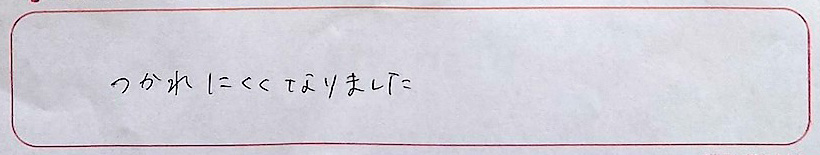 つかれにくくなりました